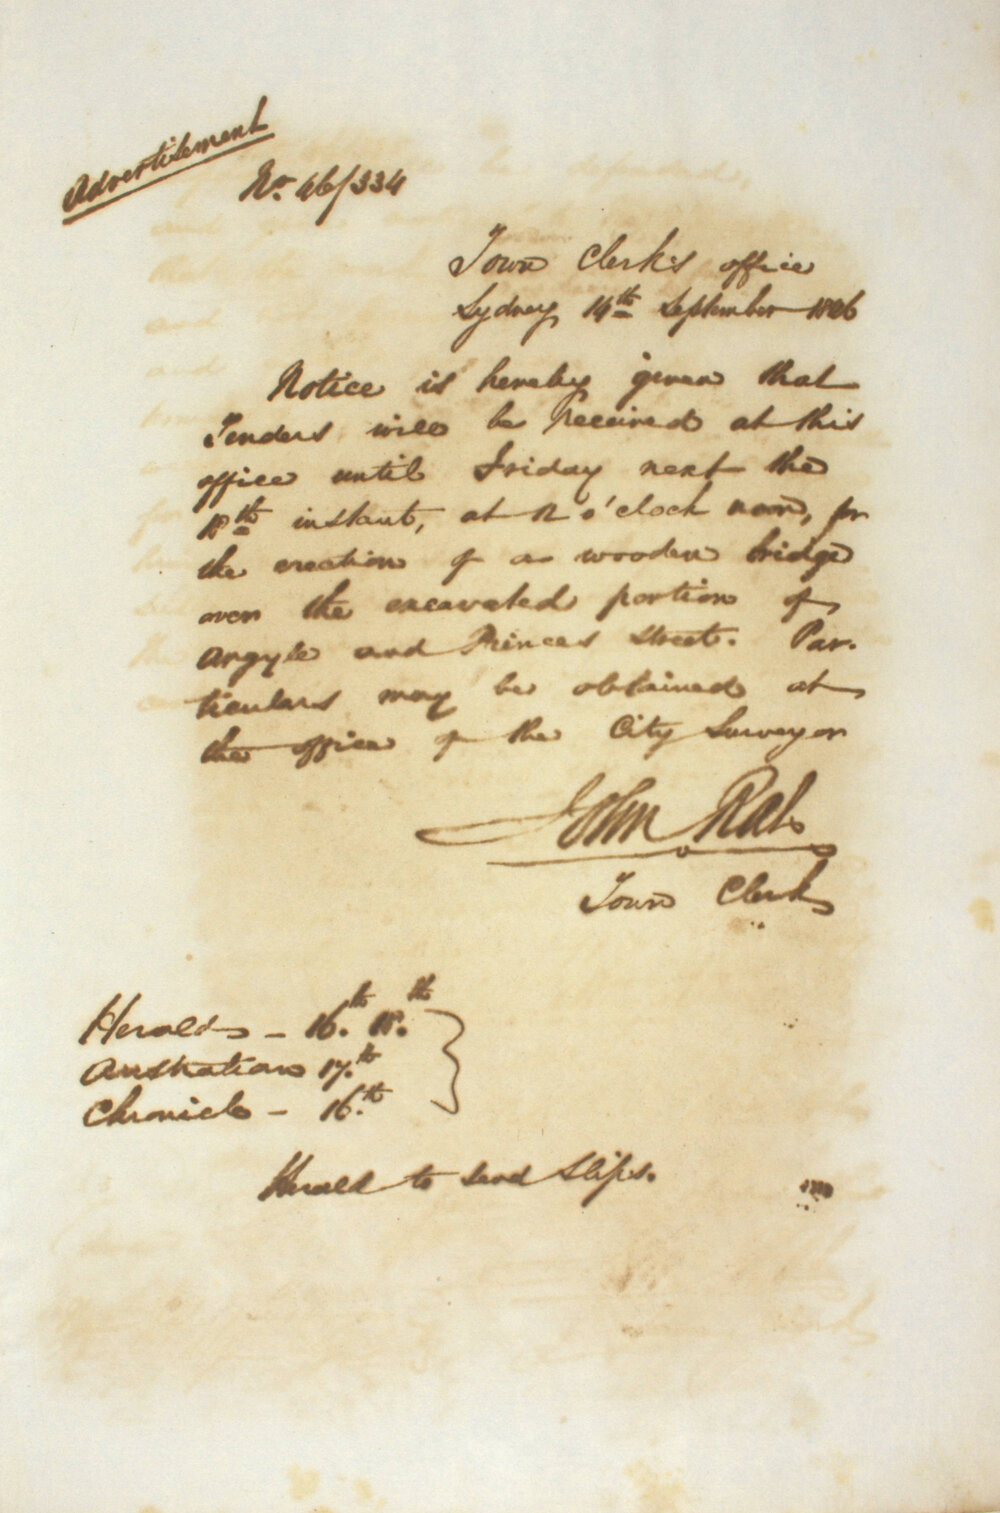 Advertisement
No. 46/334
Town Clerk's office
Sydney 14th September 1846
Notice is hereby given that
Tenders will be received at this
office until Friday next the
18th instant, at 12 o'clock noon, for
the erection of a wooden bridge
over the excavated portion of
Argyle and Princes Street. Par-
ticulars may be obtained at
the office of the City Surveyor
John Rae
Town Clerk
Herald - 16.th 18.th
Australian 17.th
Chronicle - 16.th
Herald to send slips.